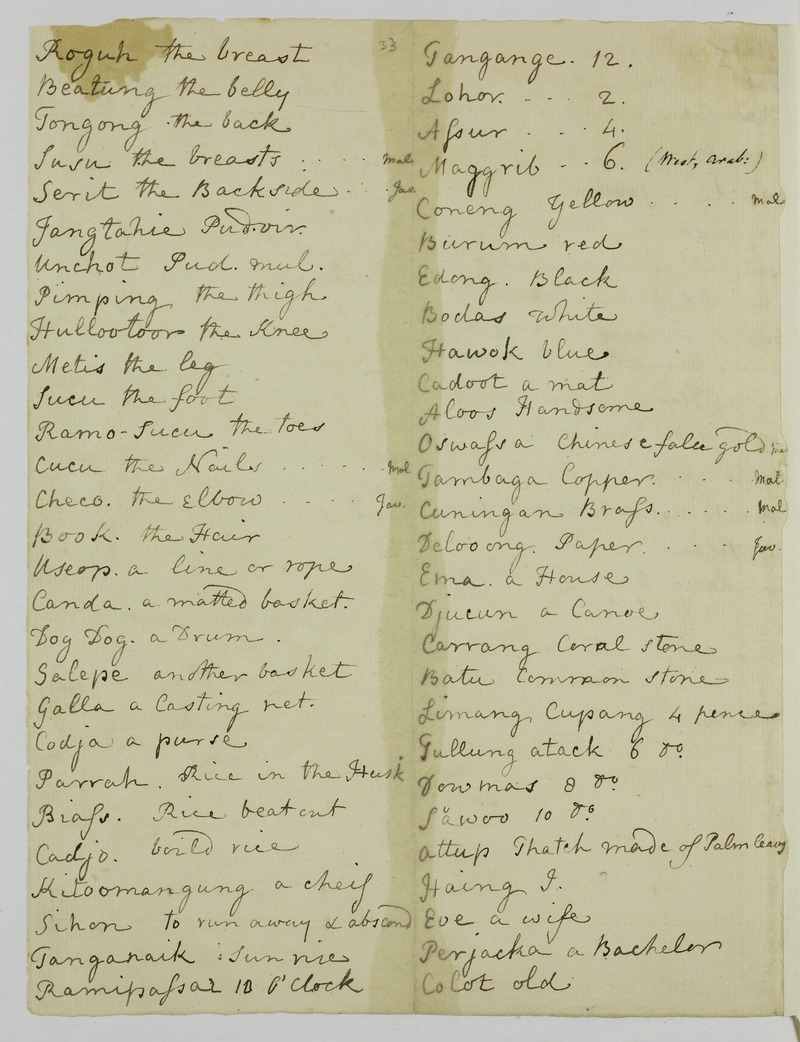 33
Roguh the breast
Beatung the belly
Tongong the back
Susu the breasts : . . . Mal.
Serit the Backside . . . Jav.
Jangtahie Pud. vir.
Unchot Pud. mul.
Pimping the thigh
Hullootoor the Knee
Metis the leg
Sucu the foot
Ramo-Sucu the toes
Cucu the Nails . . . . . . Mal
Checo. the Elbow . . . . Jav.
Book. the Hair
Useop. a line or rope
Canda. a matted basket.
Dog Dog. a Drum.
Galepe another basket
Galla a Casting net.
Codja a purse
Parrah. Rice in the Husk
Biaſs. Rice beat out
Cadjo. boild rice
Kitoomangung a cheif
Sihon to run away & abscond
Tanganaik : Sun rise
Ramipaſsar 10 O'Clock
Tangange. 12.
Lohor. - - - 2.
Aſsur - - - 4.
Maggrib - - 6. (West, arab:)
Coneng Yellow . . . . Mal.
Burum red
Edong. Black
Bodas white
Hawok blue
Cadoot a mat
Aloos Handsome
Oswaſsa Chinese false gold
Tambaga Copper. . . . Mal
Cuningan Braſs. . . . . . Mal
Delooong. Paper. . . . Jav.
Ema. a House
Djucun a Canoe
Carrang Coral stone
Batu Common stone
Limang Cupang 4 pence
Tullung atack 6 do.
Dowmas 8 do.
Säwoo 10 do.
attup Thatch made of Palm leaves
Haing I.
Eve a wife
Perjacka a Bachelor
Colot old